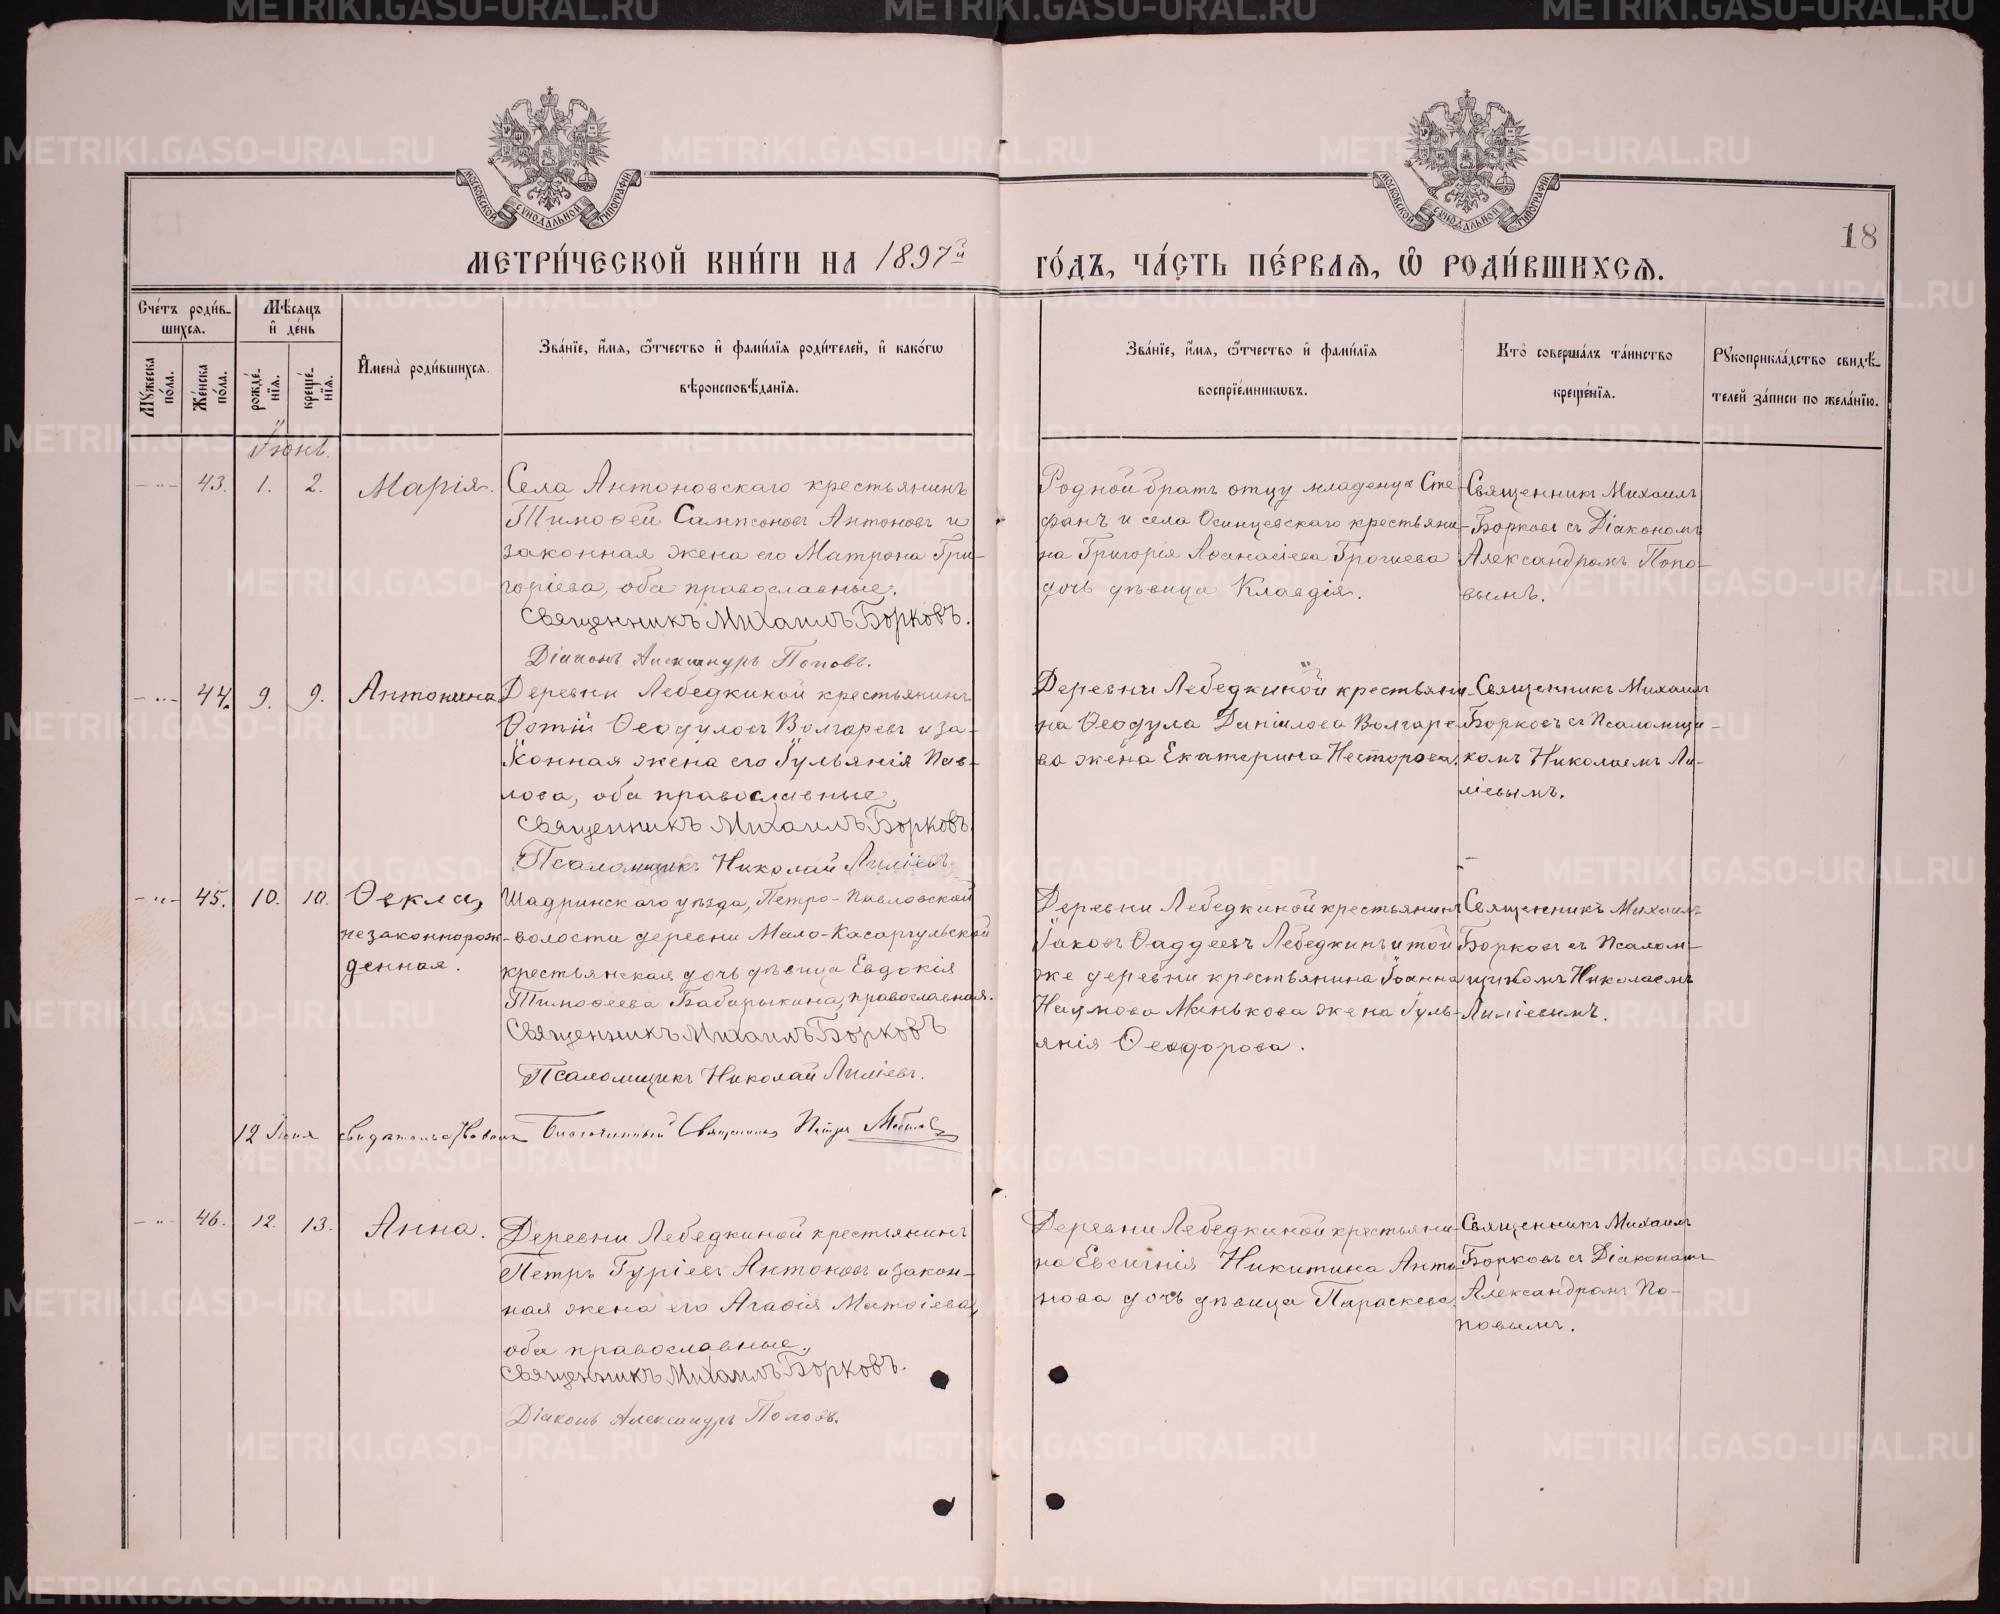 METRIKI.GASO-URAL.RU
МОСКОВСКОЙ СѴНОДАЛЬНОЙ ТИПОГРАФІИ
МОСКОВСКОЙ СѴНОДАЛЬНОЙ ТИПОГРАФІИ
18
МЕТРИ́ЧЕСКОЙ КНИ́ГИ НА 1897й ГО́ДЪ, ЧА́СТЬ ПЕ́РВАѦ, Ѡ҆ РОДИ́ВШИХСѦ.
Сче́тъ роди́в-
шихсѧ.
Мꙋ́жеска по́ла.
Же́нска по́ла.
Мѣ́сѧцъ
и҆ де́нь
рожде́-
нїѧ.
креще́-
нїѧ.
И҆мена̀ роди́вшихсѧ.
Зва́нїе, и҆́мѧ, ѻ҆́тчество и҆ фами́лїѧ роди́телей, и҆ како́гѡ
вѣроисповѣ́данїѧ.
Зва́нїе, и҆́мѧ, ѻ҆́тчество и҆ фами́лїѧ
воспрїе́мниковъ.
Кто̀ соверша́лъ та́инство
креще́нїѧ.
Рꙋкоприкла́дство свидѣ́-
телей за́писи по жела́нїю.
Іюнь.
- " - 43. 1. 2. Марія.
Села Антоновскаго крестьянинъ
Тимоѳей Сампсоновъ Антоновъ и
законная жена его Матрона Гри-
горіева, оба православные.
Священникъ Михаилъ Борковъ.
Діаконъ Александръ Поповъ.
Родной братъ отцу младенца Сте-
фанъ и села Осинцевскаго крестьяни-
на Григорія Аѳанасіева
дочь дѣвица Клавдія.
Священникъ Михаилъ
Борковъ съ Діакономъ
Александромъ Попо-
вымъ.
- " - 44. 9. 9. Антонина
Деревни Лебедкиной крестьянинъ
Фотій Ѳеодуловъ Волгаревъ и за-
конная жена его Іульянія Пав-
лова, оба православные.
Священникъ Михаилъ Борковъ.
Псаломщикъ Николай Лиліевъ.
Деревни Лебедкиной крестьяни-
на Ѳеодула Даніилова Волгаре-
ва жена Екатерина Несторова.
Священникъ Михаилъ
Борковъ съ Псаломщи-
комъ Николаемъ Ли-
ліевымъ.
- " - 45. 10. 10. Ѳекла,
незаконнорож-
денная.
Шадринскаго уѣзда, Петро-Павловской
волости деревни Мало-Касаргульской
крестьянская дочь дѣвица Евдокія
Тимоѳеева Бабарыкина, православная.
Священникъ Михаилъ Борковъ
Псаломщикъ Николай Лиліевъ.
Деревни Лебедкиной крестьянинъ
Іаковъ Ѳаддеевъ Лебедкинъ и той
же деревни крестьянина Іоанна
Наумова Менькова жена Іуль-
янія Ѳеодорова.
Священникъ Михаилъ
Борковъ съ Псалом-
щикомъ Николаемъ
Лиліевымъ.
12 Іюня свидѣтельствовалъ Благочинный Священникъ Петръ
- " - 46. 12. 13. Анна.
Деревни Лебедкиной крестьянинъ
Петръ Гуріевъ Антоновъ и закон-
ная жена его Агаѳія Матѳіева,
оба православные.
Священникъ Михаилъ Борковъ.
Діаконъ Александръ Поповъ.
Деревни Лебедкиной крестьяни-
на Евсигнія Никитина Анто-
нова дочь дѣвица Параскева.
Священникъ Михаилъ
Борковъ съ Діакономъ
Александромъ По-
повымъ.